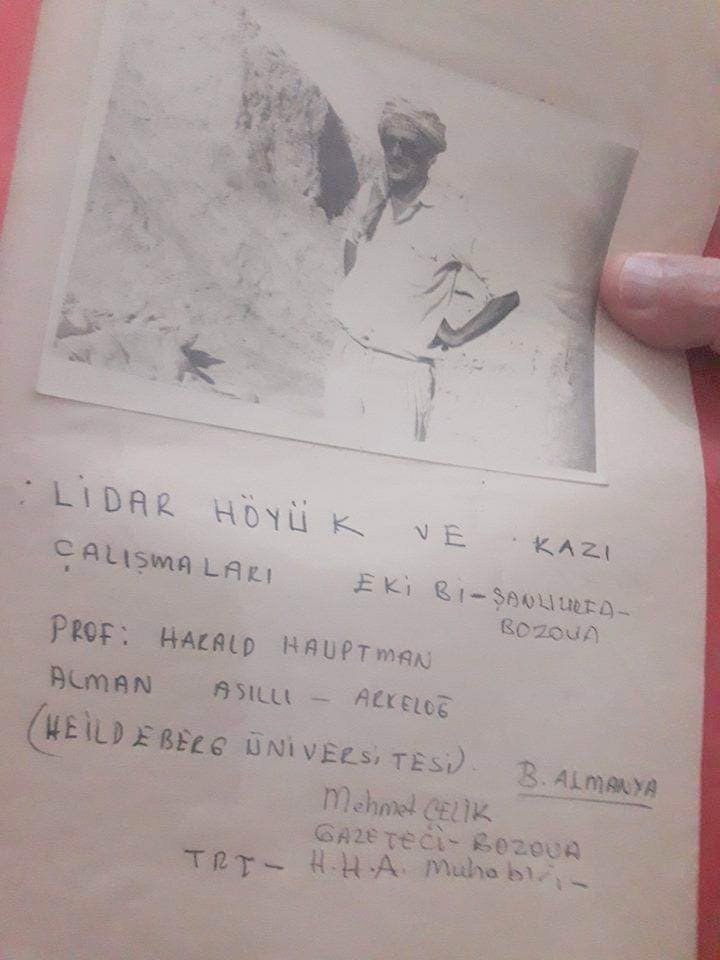 : LİDAR HÖYÜK VE . KAZI
ÇALIŞMALARI EKİ Bİ-ŞANLIURFA-
BOZOVA
PROF: HARALD HAUPTMAN
ALMAN ASILLI - ARKELOĞ
(HEİLDEBERG ÜNİVERSİTESİ).
B. ALMANYA
Mehmet ÇELİK
GAZETECİ- BOZOVA
TRT - H.H.A. Muhabiri-